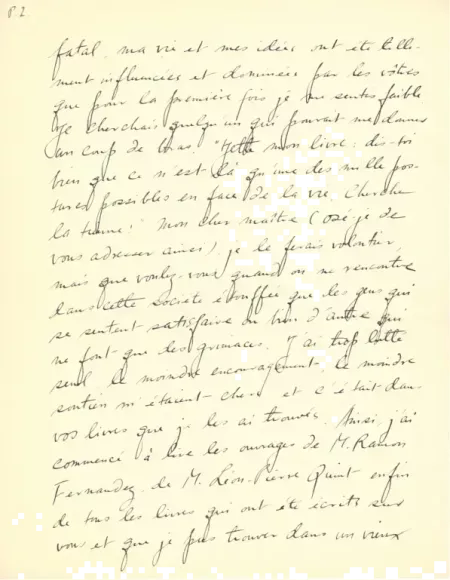 P. 2
fatal, ma vie et mes idées ont été telle-
ment influencées et dominées par les vôtres
que pour la première fois je me sentis faible
Je cherchais quelqu'un qui pouvait me donner
un coup de bras. "Jette mon livre: dis-toi
bien que ce n'est là qu'une des mille pos-
tures possibles en face de la vie. Cherche
la tienne." Mon cher maître (osé-je de
vous adresser ainsi), je le ferais volontier,
mais que voulez-vous quand on ne rencontre
dans cette société étouffée que des gens qui
se sentent satisfaire ou bien d'autre qui
ne font que des grimaces. J'ai trop lutté
seul le moindre encouragement le moindre
soutien m'étaient chers et c'était dans
vos livres que je les ai trouvés. Ainsi j'ai
commencé à lire les ouvrages de M. Ramon
Fernandez de M. Léon-Pierre Quint enfin
de tous les livres qui ont été écrits sur
vous et que je pus trouver dans un vieux